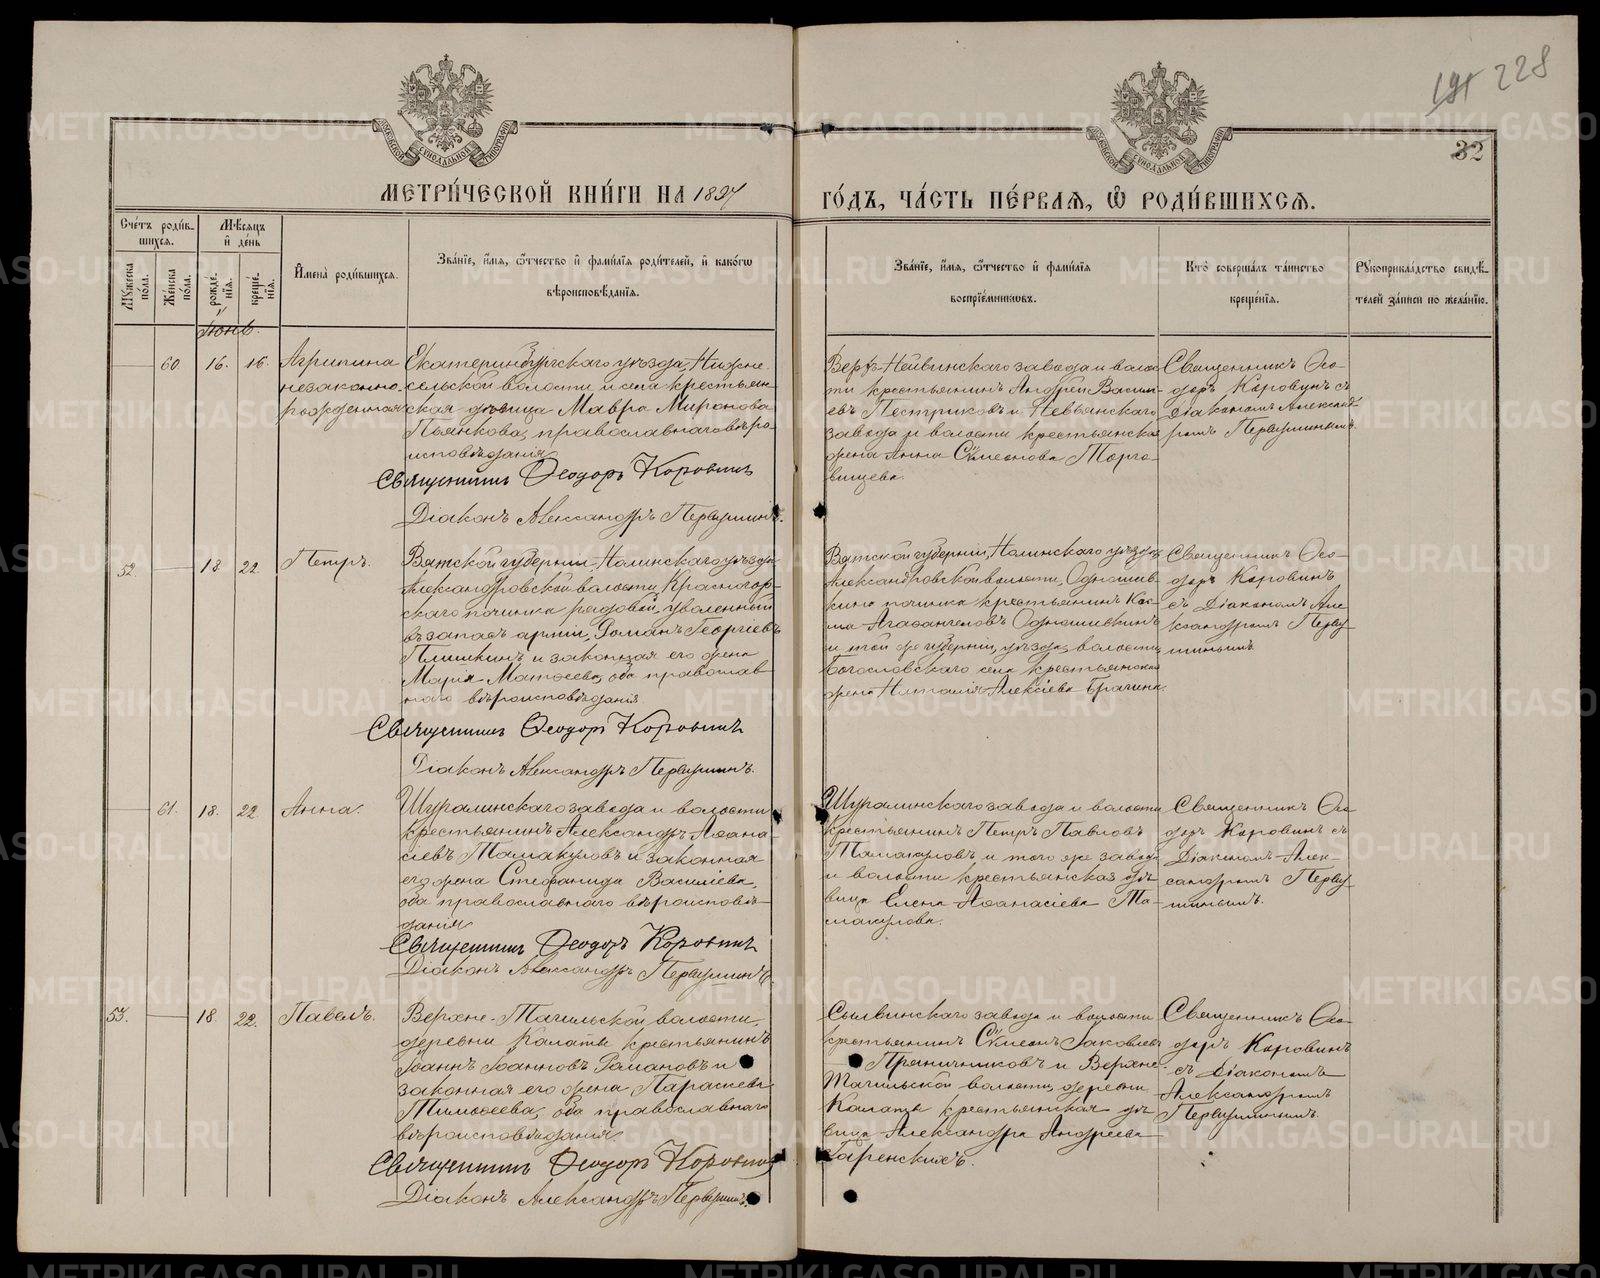 191 228
32
МОСКОВСКОЙ СѴНОДАЛЬНОЙ ТИПОГРАФІИ
МОСКОВСКОЙ СѴНОДАЛЬНОЙ ТИПОГРАФІИ
МЕТРИ́ЧЕСКОЙ КНИ́ГИ НА 1897
ГО́ДЪ, ЧА́СТЬ ПЕ́РВАѦ, Ѽ РОДИ́ВШИХСѦ.
Сче́тъ роди́в-
шихсѧ.
Мꙋ́жеска по́ла.
Же́нска по́ла.
Мѣ́сѧцъ
и҆ де́нь
рожде́-
нїѧ.
креще́-
нїѧ.
И҆мена̀ роди́вшихсѧ.
Зва́нїе, и҆́мѧ, ѻ҆́тчество и҆ фами́лїѧ роди́телей, и҆ како́гѡ
вѣроисповѣ́данїѧ.
Зва́нїе, и҆́мѧ, ѻ҆́тчество и҆ фами́лїѧ
воспрїе́мникѡвъ.
Кто̀ соверша́лъ та́инство
креще́нїѧ.
Рꙋкоприкла́дство свидѣ́-
телей за́писи по жела́нїю.
Іюнь.
60. 16. 16. Агрипина
незаконно-
рожденная
Екатеринбургскаго уѣзда, Нижне-
сельской волости и села крестьян-
ская дѣвица Мавра Миронова
Пьянкова, православнаго вѣро-
исповѣданія
Священникъ Ѳеодоръ Коровинъ
Діаконъ Александръ Первушинъ.
Верх-Нейвинскаго завода и волос-
ти крестьянинъ Андрей Василь-
евъ Пестриковъ и Невьянскаго
завода и волости крестьянская
жена Анна Сѵмеонова Торго-
вищева.
Священникъ Ѳео-
доръ Коровинъ съ
Діакономъ Александ-
ромъ Первушинымъ.
52. 18. 22. Петръ.
Вятской губерніи, Нолинскаго уѣзда,
Александровской волости, Красногор-
скаго починка рядовой, уволенный
въ запасъ арміи, Романъ Георгіевъ
Плишкинъ и законная его жена
Марія Матѳеева, оба православ-
наго вѣроисповѣданія
Священникъ Ѳеодоръ Коровинъ
Діаконъ Александръ Первушинъ.
Вятской губерніи, Нолинскаго уѣзда,
Александровской волости,
кина починка крестьянинъ Кос-
ма Агаѳангеловъ
и той же губерніи, уѣзда, волости,
Богословскаго села крестьянская
жена Наталія Алексіева Брагина.
Священникъ Ѳео-
доръ Коровинъ
съ Діакономъ Але-
ксандромъ Перву-
шинымъ.
61. 18. 22. Анна.
Шуралинскаго завода и волости
крестьянинъ Александръ Аѳана-
сіевъ Тамакуловъ и законная
его жена Стефанида Василіева,
оба православнаго вѣроисповѣ-
данія
Священникъ Ѳеодоръ Коровинъ
Діаконъ Александръ Первушинъ.
Шуралинскаго завода и волости
крестьянинъ Петръ Павловъ
Тамакуловъ и того же завода
и волости крестьянская дѣ-
вица Елена Аѳанасіева Та-
макулова.
Священникъ Ѳео-
доръ Коровинъ съ
Діакономъ Алек-
сандромъ Перву-
шинымъ.
53. 18. 22. Павелъ.
Верхне-Тагильской волости,
деревни Калаты крестьянинъ
Іоаннъ Іоанновъ Романовъ и
законная его жена Параскева
Тимоѳеева, оба православнаго
вѣроисповѣданія
Священникъ Ѳеодоръ Коровинъ
Діаконъ Александръ Первушинъ.
Сылвинскаго завода и волости
крестьянинъ Сѵмеонъ Іаковлевъ
Пряничниковъ и Верхне-
Тагильской волости, деревни
Калаты крестьянская дѣ-
вица Александра Андреева
Священникъ Ѳео-
доръ Коровинъ
съ Діакономъ
Александромъ
Первушинымъ.
METRIKI.GASO-URAL.RU